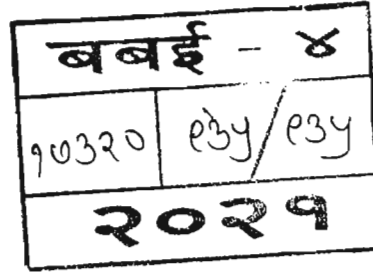 बबई - ४
१७३२० १३५/१३५
२०२१